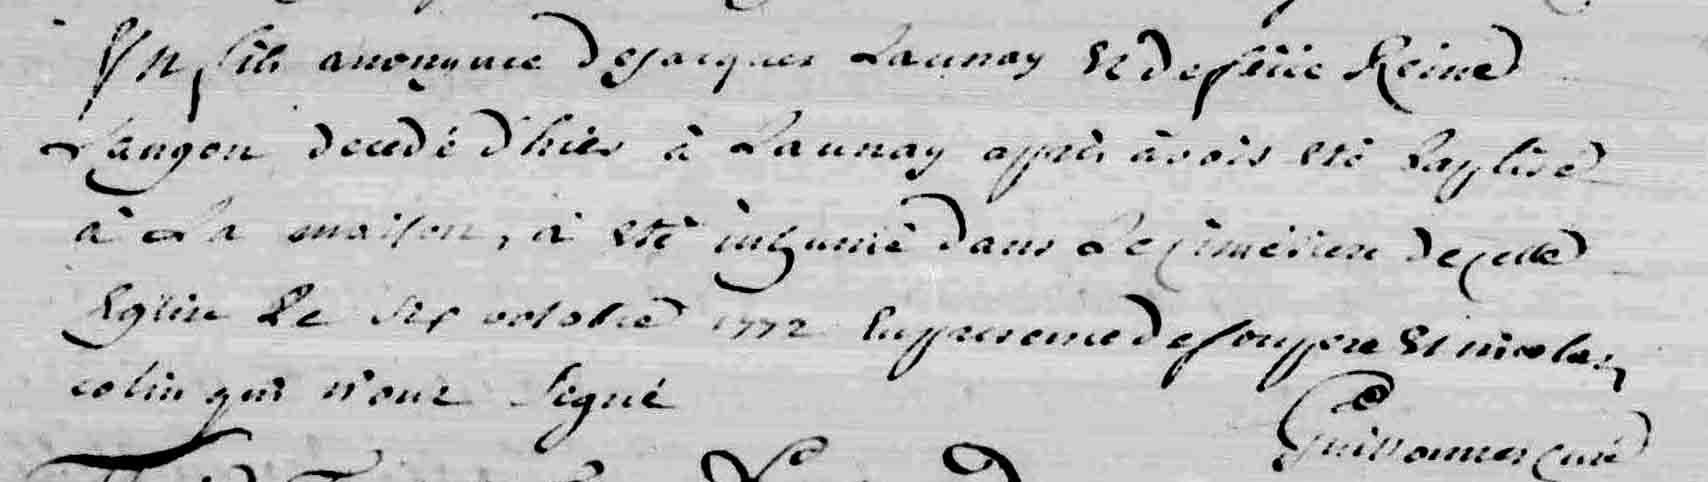 Un fils anonyme de jacques Launay et de félice Reine
Langon decedé d'hier à Launay après avoir eté baptisé
à La maison, à eté inhumé dans Le cimétiere de cette
Eglise Le six octobre 1772 En presence de son pere Et nicolas
colin qui n'ont signé
Guillaumer curé